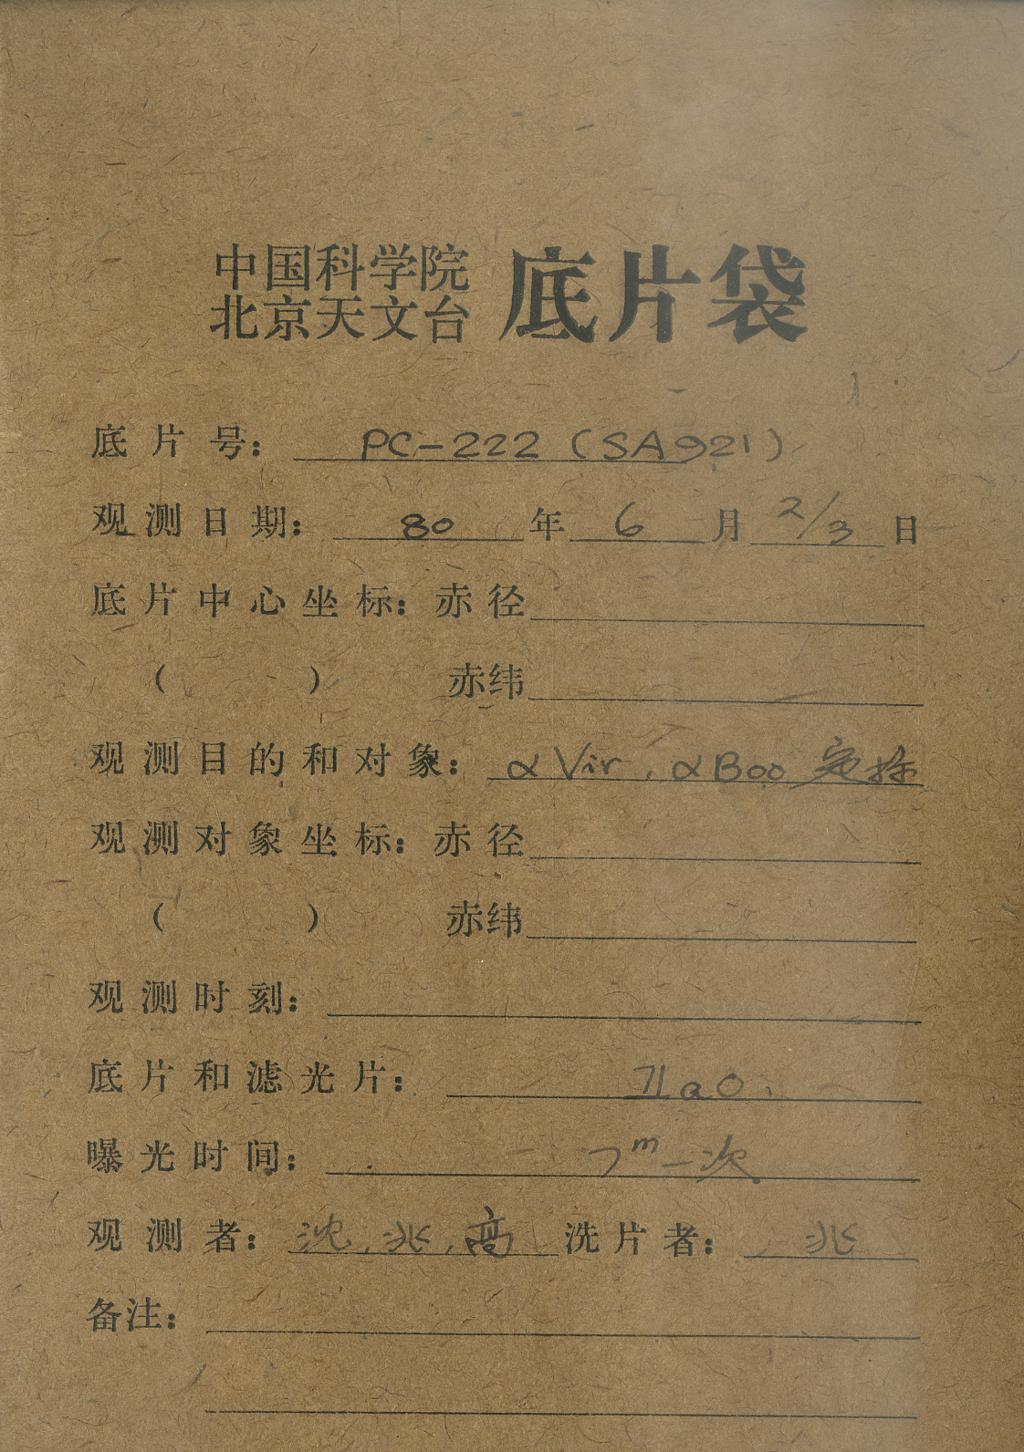 中国科学院
北京天文台 底片袋
底片号: PC-222 (SA921)
观测日期: 80 年 6 月 2/3 日
底片中心坐标: 赤径
( ) 赤纬
观测目的和对象: αVir, αBoo 定标
观测对象坐标: 赤径
( ) 赤纬
观测时刻:
底片和滤光片: IIaO.
曝光时间: 7ᵐ一次
观测者: 沈, 兆, 高 洗片者: 兆
备注: